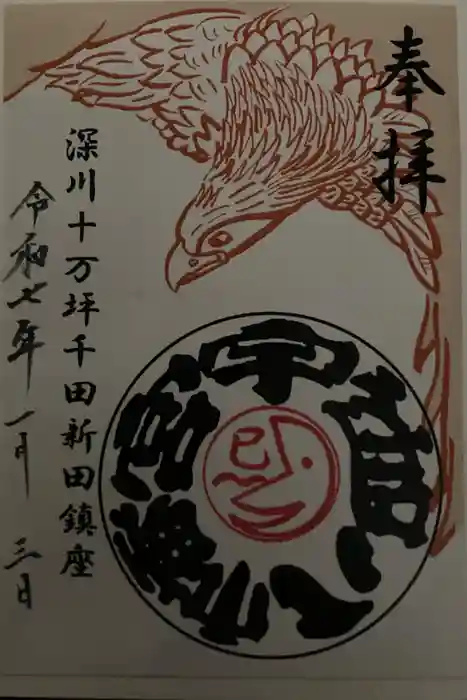 奉拝
深川十万坪千田新田鎮座
令和七年一月三日
宇 八幡宮